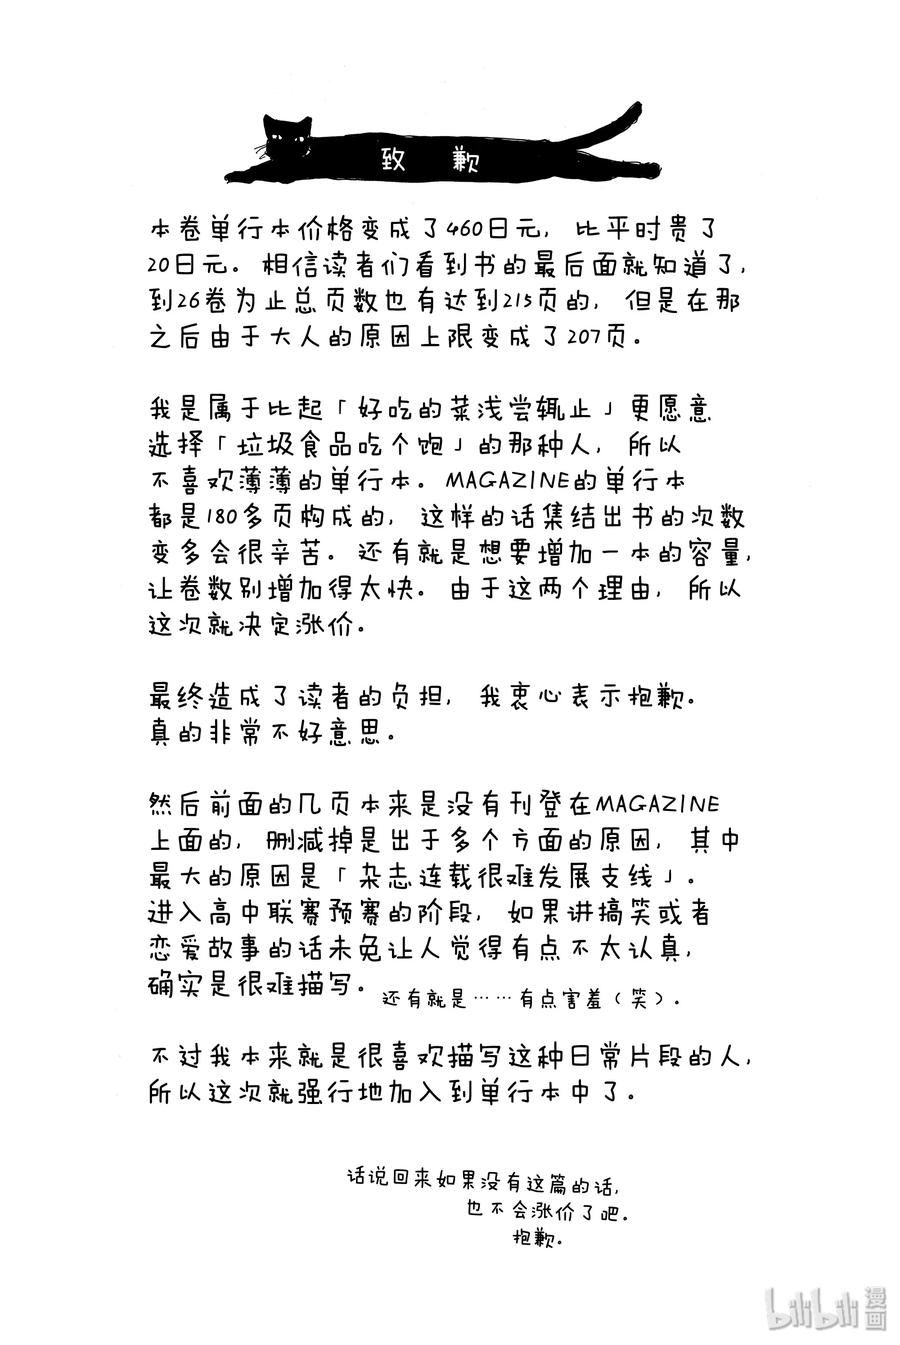 致 歉
本卷单行本价格变成了460日元，比平时贵了
20日元。相信读者们看到书的最后面就知道了，
到26卷为止总页数也有达到215页的，但是在那
之后由于大人的原因上限变成了207页。
我是属于比起「好吃的菜浅尝辄止」更愿意
选择「垃圾食品吃个饱」的那种人，所以
不喜欢薄薄的单行本。MAGAZINE的单行本
都是180多页构成的，这样的话集结出书的次数
变多会很辛苦。还有就是想要增加一本的容量，
让卷数别增加得太快。由于这两个理由，所以
这次就决定涨价。
最终造成了读者的负担，我衷心表示抱歉。
真的非常不好意思。
然后前面的几页本来是没有刊登在MAGAZINE
上面的，删减掉是出于多个方面的原因，其中
最大的原因是「杂志连载很难发展支线」。
进入高中联赛预赛的阶段，如果讲搞笑或者
恋爱故事的话未免让人觉得有点不太认真，
确实是很难描写。还有就是……有点害羞（笑）．
不过我本来就是很喜欢描写这种日常片段的人，
所以这次就强行地加入到单行本中了。
话说回来如果没有这篇的话，
也不会涨价了吧。
抱歉。
bilibili漫画